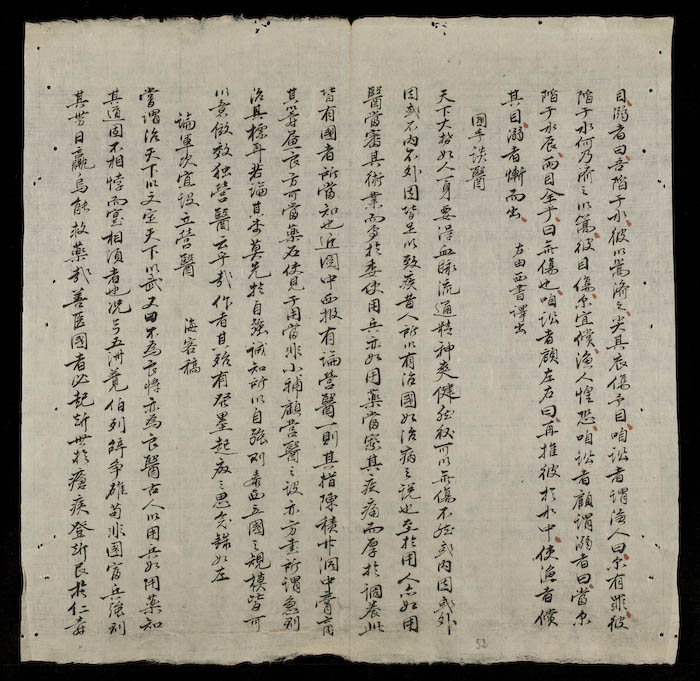 目溺者曰吾陷于水彼以篙濟之尖其衣傷予目咱訟者謂漁人曰尔有罪彼
陷于水何乃濟之以篙彼目傷尔宜償漁人惶恐咱訟者顧謂溺者曰當尔
陷于水辰兩目全乎曰無傷也咱訟者顧左右曰再推彼於水中使漁者償
其目溺者慚而出 右由西書譯出
國手談醫
天下大势如人一身要得血脉流通精神爽健然後可以無傷不然或内因或外
因或不内不外因皆足以致疾昔人所以有治國如治病之說也至於用人亦如用
醫當審其術業而專於委使用兵亦如用藥當察其疾痛而厚於調養此
皆有國者所當知也近閱中西报有論營醫一則其指陳積弊洞中膏肓
其籌畫良方可當藥石使見于用當非小補顧營醫之設亦方書所謂急則
治其標耳若論其本莫先於自强誠知所以自强則泰西五國之規模皆可
以意倣效独營醫云乎哉作者其殆有居墨起癈之思矣錄如左
論軍次宜設立營醫 海客稿
嘗謂治天下以文定天下以武又曰不為良將亦為良醫古人以用兵如用藥知
其道固不相悖而實相須者也况乎五洲競伯列辟争雄苟非國富兵强則
其势日羸烏能救藥哉善医國者必起斯世於瘡疾登斯民於仁壽
52